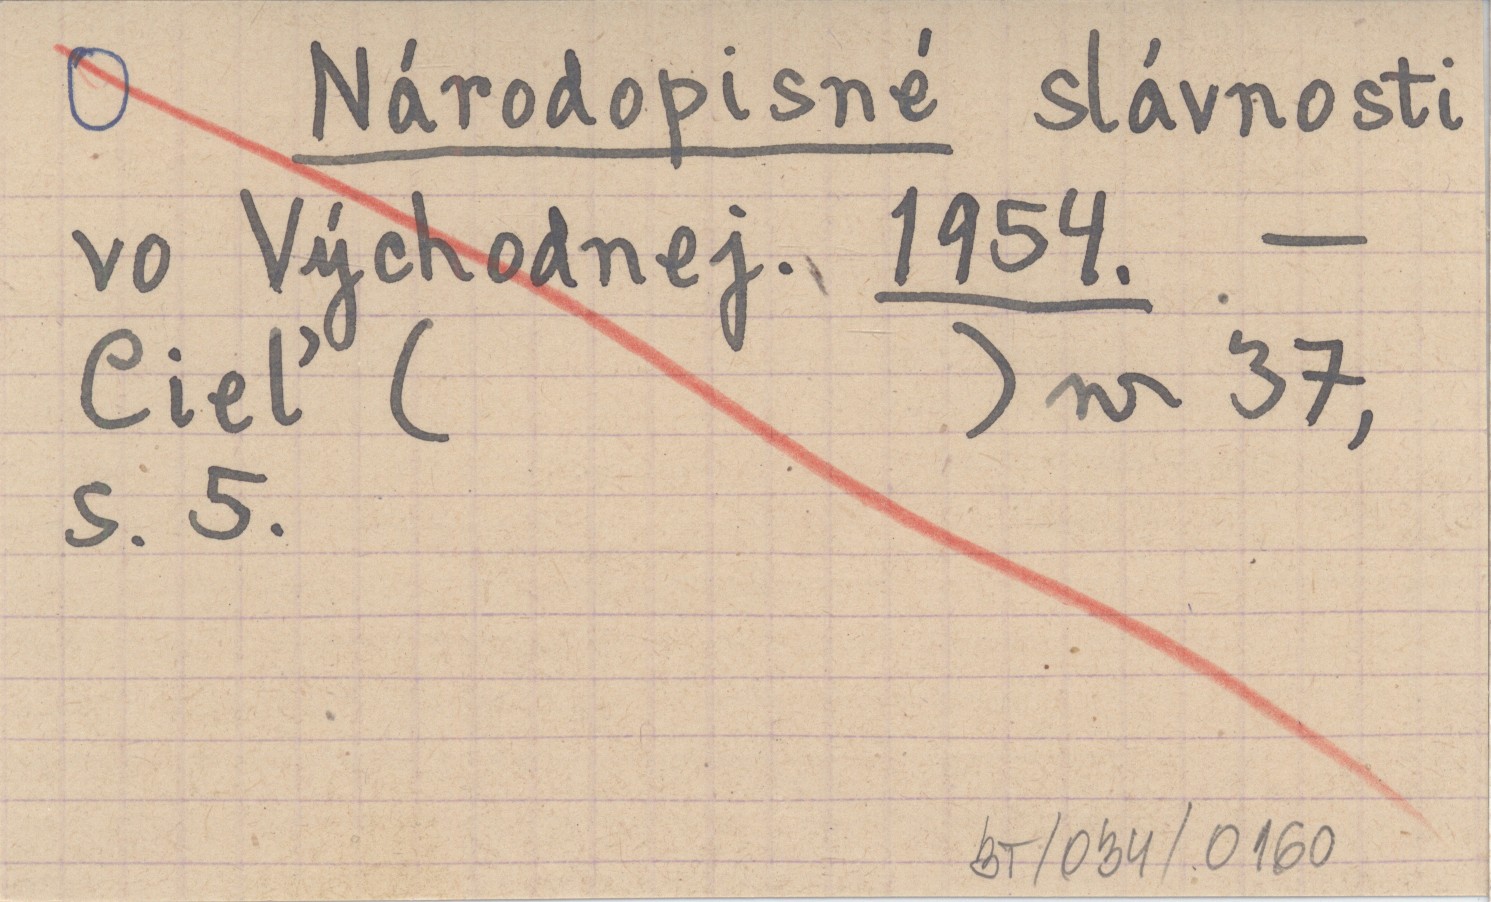 O Národopisné slávnosti
vo Východnej. 1954. —
Cieľ ( ) nr 37,
s. 5.
BT/034/.0160